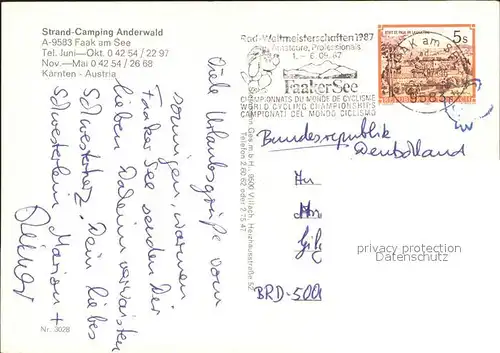 Strand-Camping Anderwald
A-9583 Faak am See
Tel. Juni—Okt. 0 42 54 / 22 97
Nov.—Mai 0 42 54 / 26 68
Kärnten - Austria
Viele Urlaubsgrüße vom
sonnigen, warmen
Faaker See senden Dir
lieben Daheimverwaisten
Schwesterherz. Dein liebes
Schwesterlein Marion +
Nr. 3028
Rad-Weltmeisterschaften 1987
Amateure, Professionals
1. - 6. 09. 87
Faaker See
CHAMPIONNATS DU MONDE DE CYCLISME
WORLD CYCLING CHAMPIONSHIPS
CAMPIONATI DEL MONDO CICLISMO
5s
FAAK am SEE
9583
Ges. m. b. H., 9500 Villach, Heizhausstraße 52
Telefon 2 60 62 oder 2 75 47
Bundesrepublik
Deutschland
An
BRD-5000
privacy protection
Datenschutz